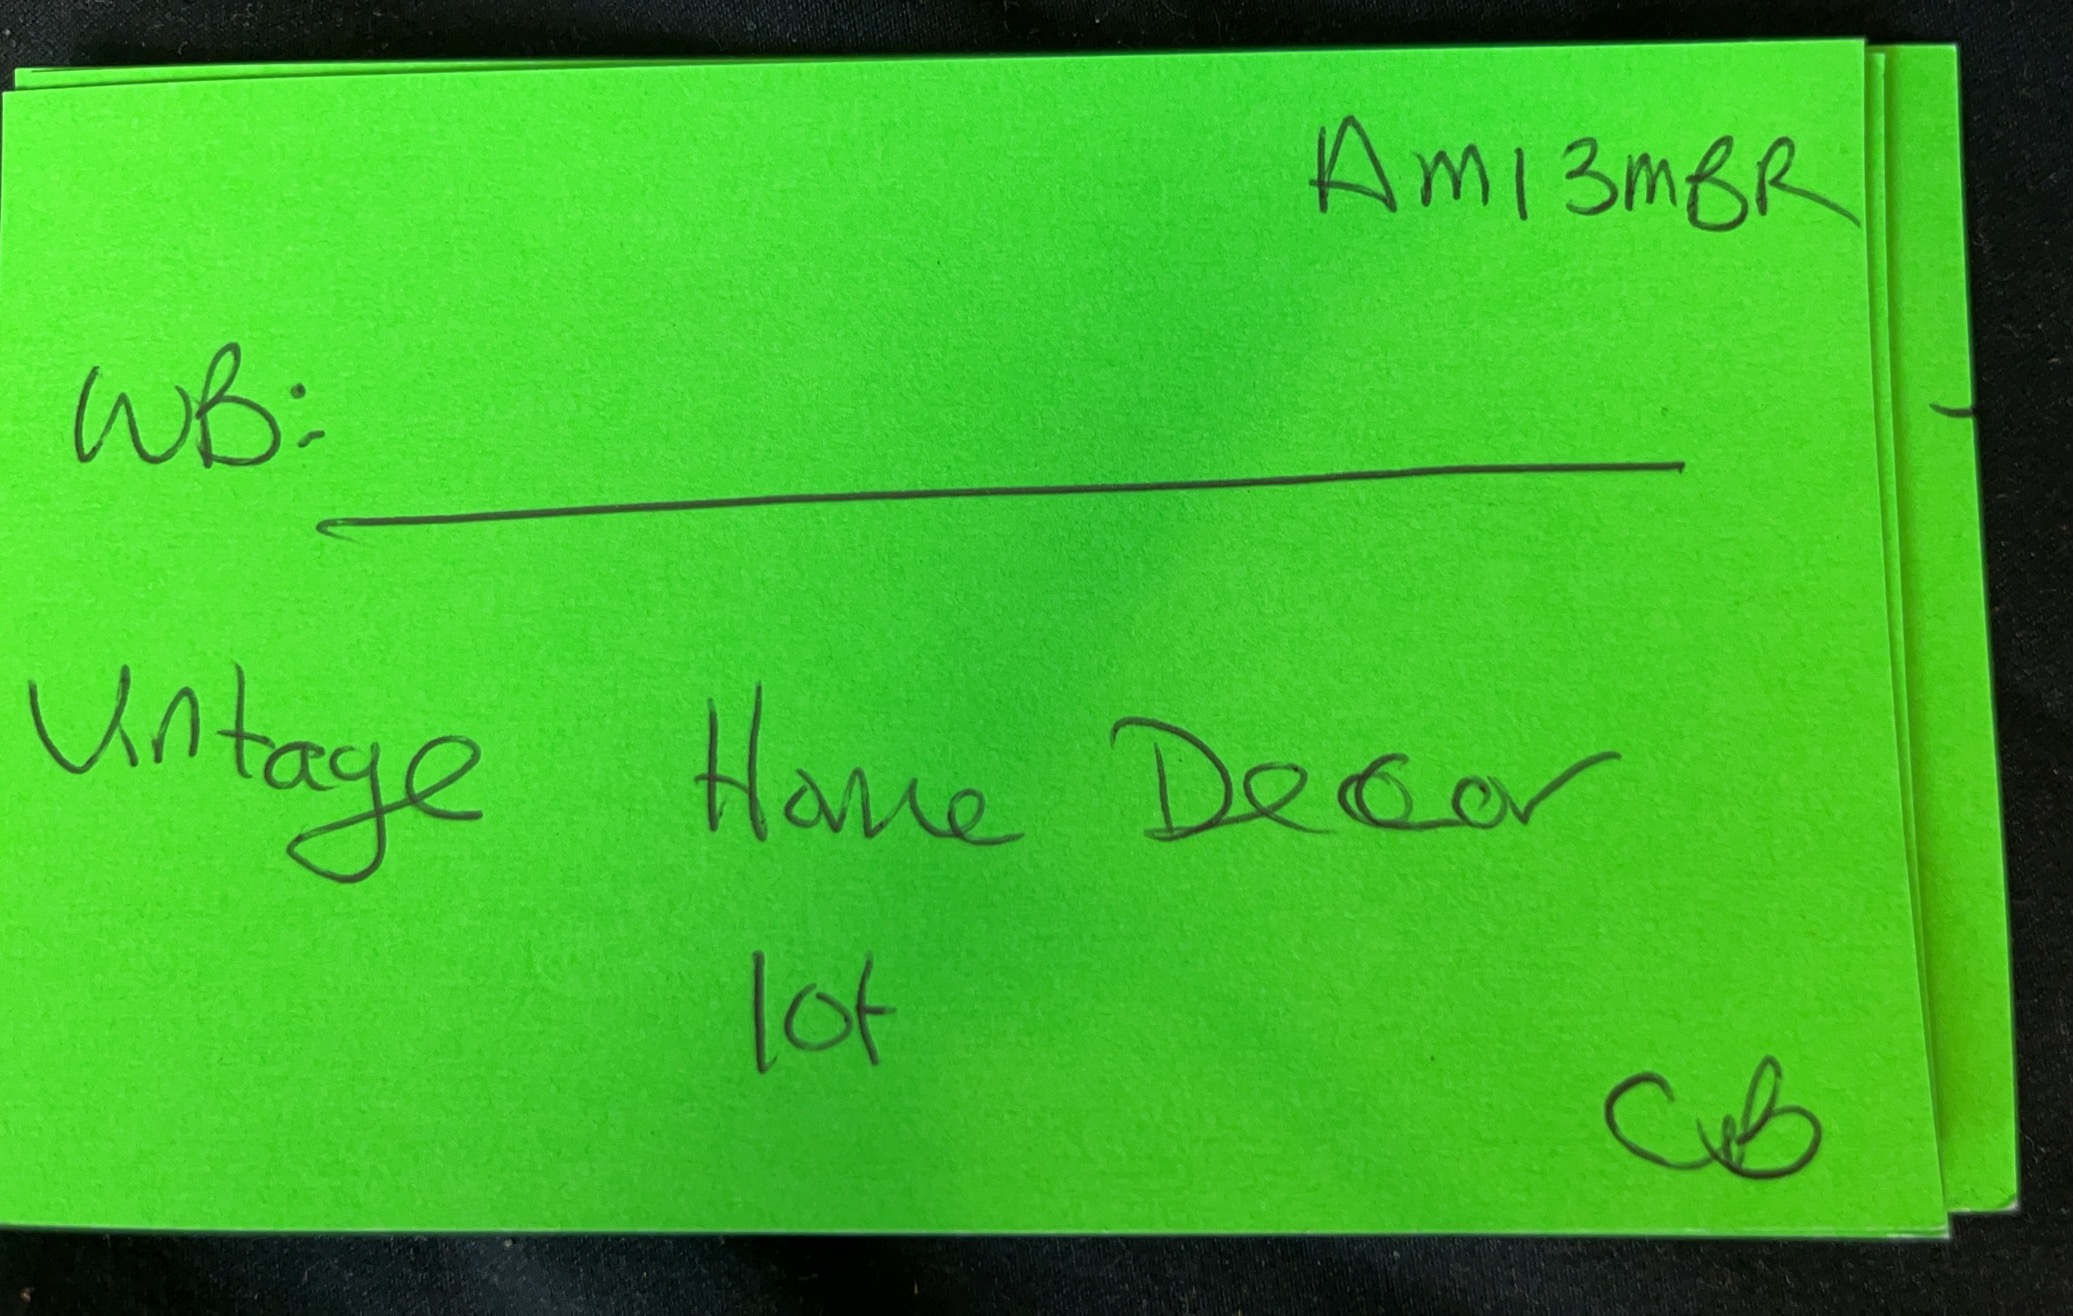 Am13mBR
WB:
Vintage Home Decor
lot
CB